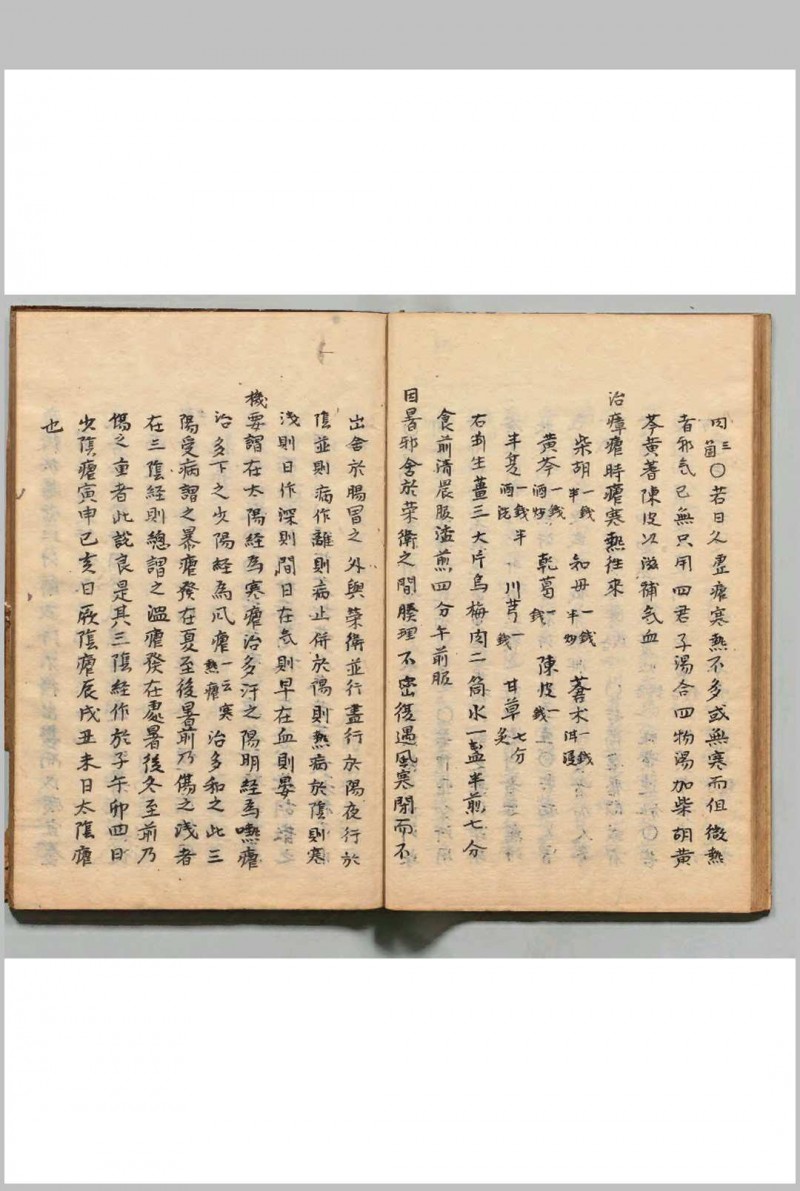 肉三箇〇若日久虛瘧寒熱不多或無寒而但微熱
者邪气已無只用四君子湯合四物湯加柴胡黃
芩黃蓍陳皮以滋補气血
治瘴瘧時瘧寒熱往來
柴胡一錢半 知母一錢半炒 蒼术一錢泔浸
黃芩一錢酒炒 乾葛一錢 陳皮一錢
半夏一錢半酒洗 川芎一錢 甘草七分炙
右剉生薑三大片烏梅肉二箇水一盞半煎七分
食前清晨服渣煎四分午前服
因暑邪舍於荣衛之間腠理不密復遇風寒閉而不
出舍於腸胃之外與荣衛並行晝行於陽夜行於
陰並則病作離則病止併於陽則熱病於陰則寒
淺則日作深則間日在气則早在血則晏
機要謂在太陽經為寒瘧治多汗之陽明經為熱瘧
治多下之少陽經為风瘧一云寒熱瘧治多和之此三
陽受病謂之暴瘧發在夏至後暑前乃傷之淺者
在三陰經則總謂之溫瘧發在處暑後冬至前乃
傷之重者此説良是其三陰經作於子午卯四日
少陰瘧寅申巳亥日厥陰瘧辰戌丑未日太陰瘧
也